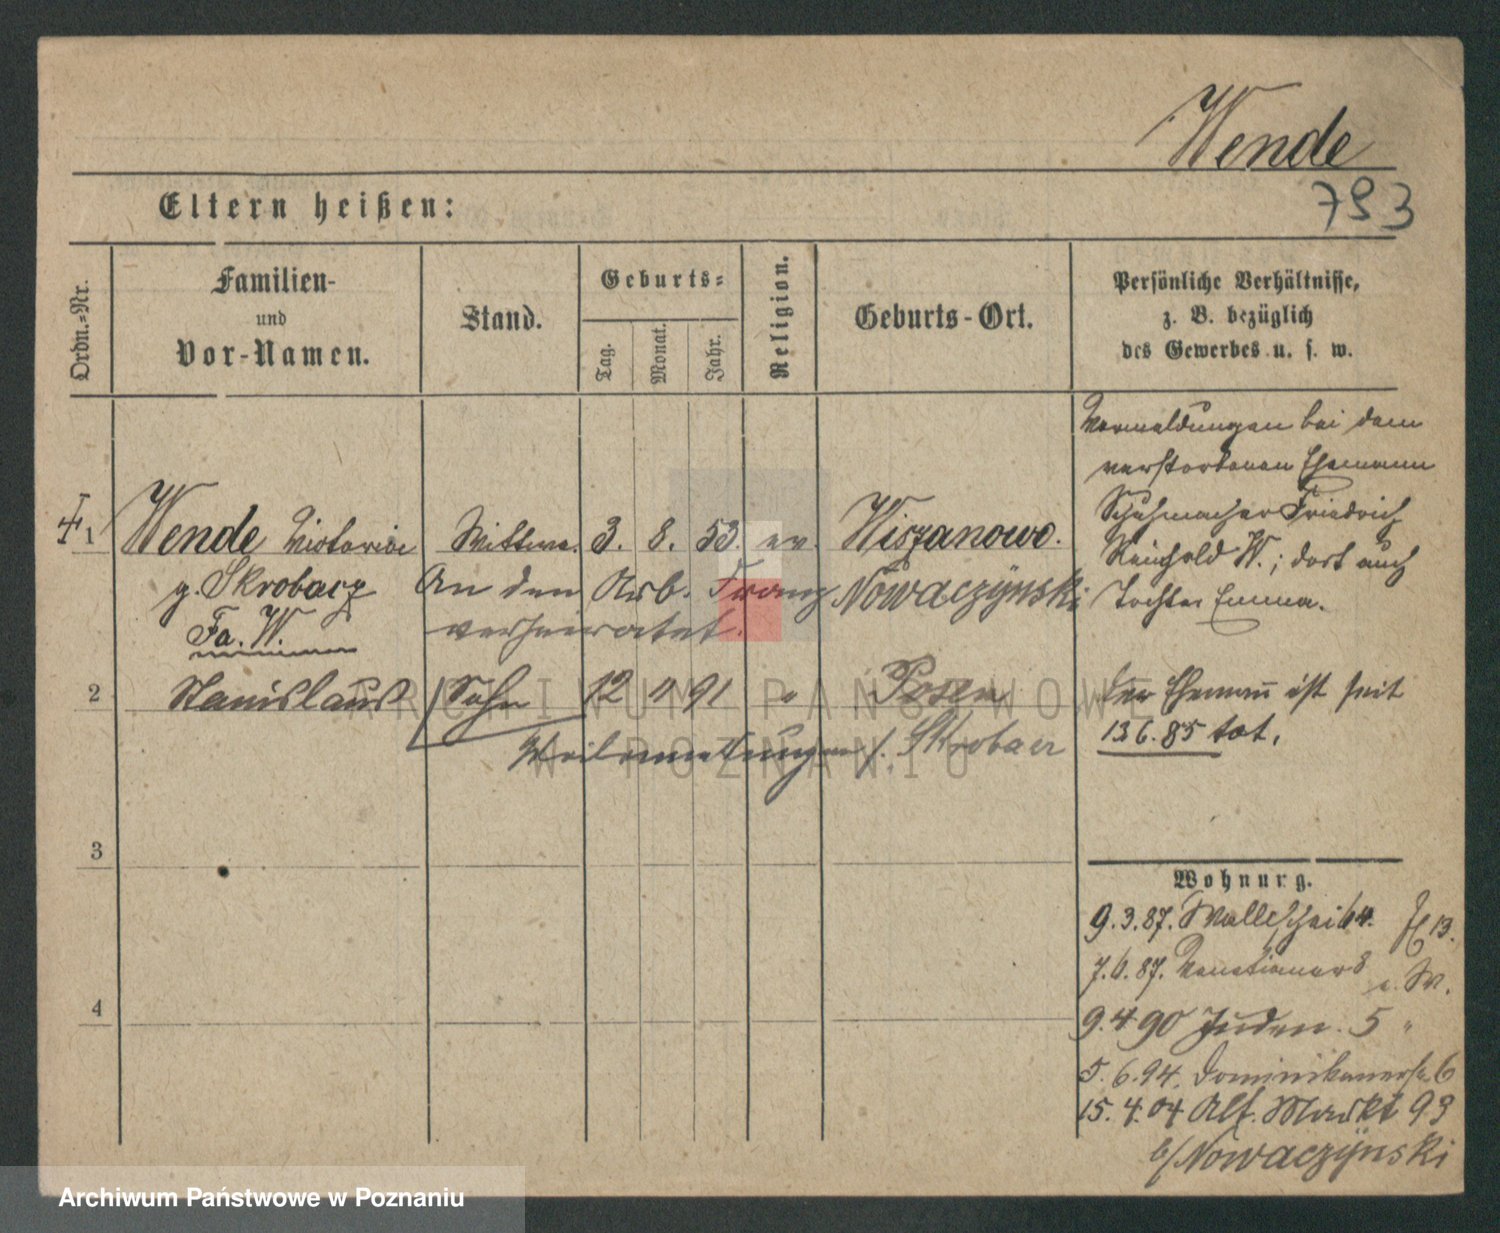 Wende
793
Eltern heißen:
Ordn.-Nr.
Familien-
und
Vor-Namen.
Stand.
Geburts-
Tag.
Monat.
Jahr.
Religion.
Geburts-Ort.
Persönliche Verhältnisse,
z. B. bezüglich
des Gewerbes u. s. w.
Vermeldungen bei dem
verstorbenen Ehemann
Schuhmacher Friedrich
Reinhold W.; dort auch
Tochter Emma.
1 Wende Victoria Wittwe. 3. 8. 53. ev. Wiszanowo.
g. Skrobacz An den Arb. Franz Nowaczÿnski
Fa. W. verheiratet.
2 Stanislaus Sohn 12 11 91 " Posen
Der Ehemann ist seit
13 6. 85 tot.
Skrobacz
3
4
Wohnung.
9. 3. 87. Wallischei 64.
7. 6. 87. Venetianer 8
9. 4 90 Juden. 5 "
5. 6. 94. Dominikanerstr. 6
15. 4. 04 Alt. Markt 93
b/ Nowaczÿnski
ARCHIWUM PAŃSTWOWE
W POZNANIU
Archiwum Państwowe w Poznaniu